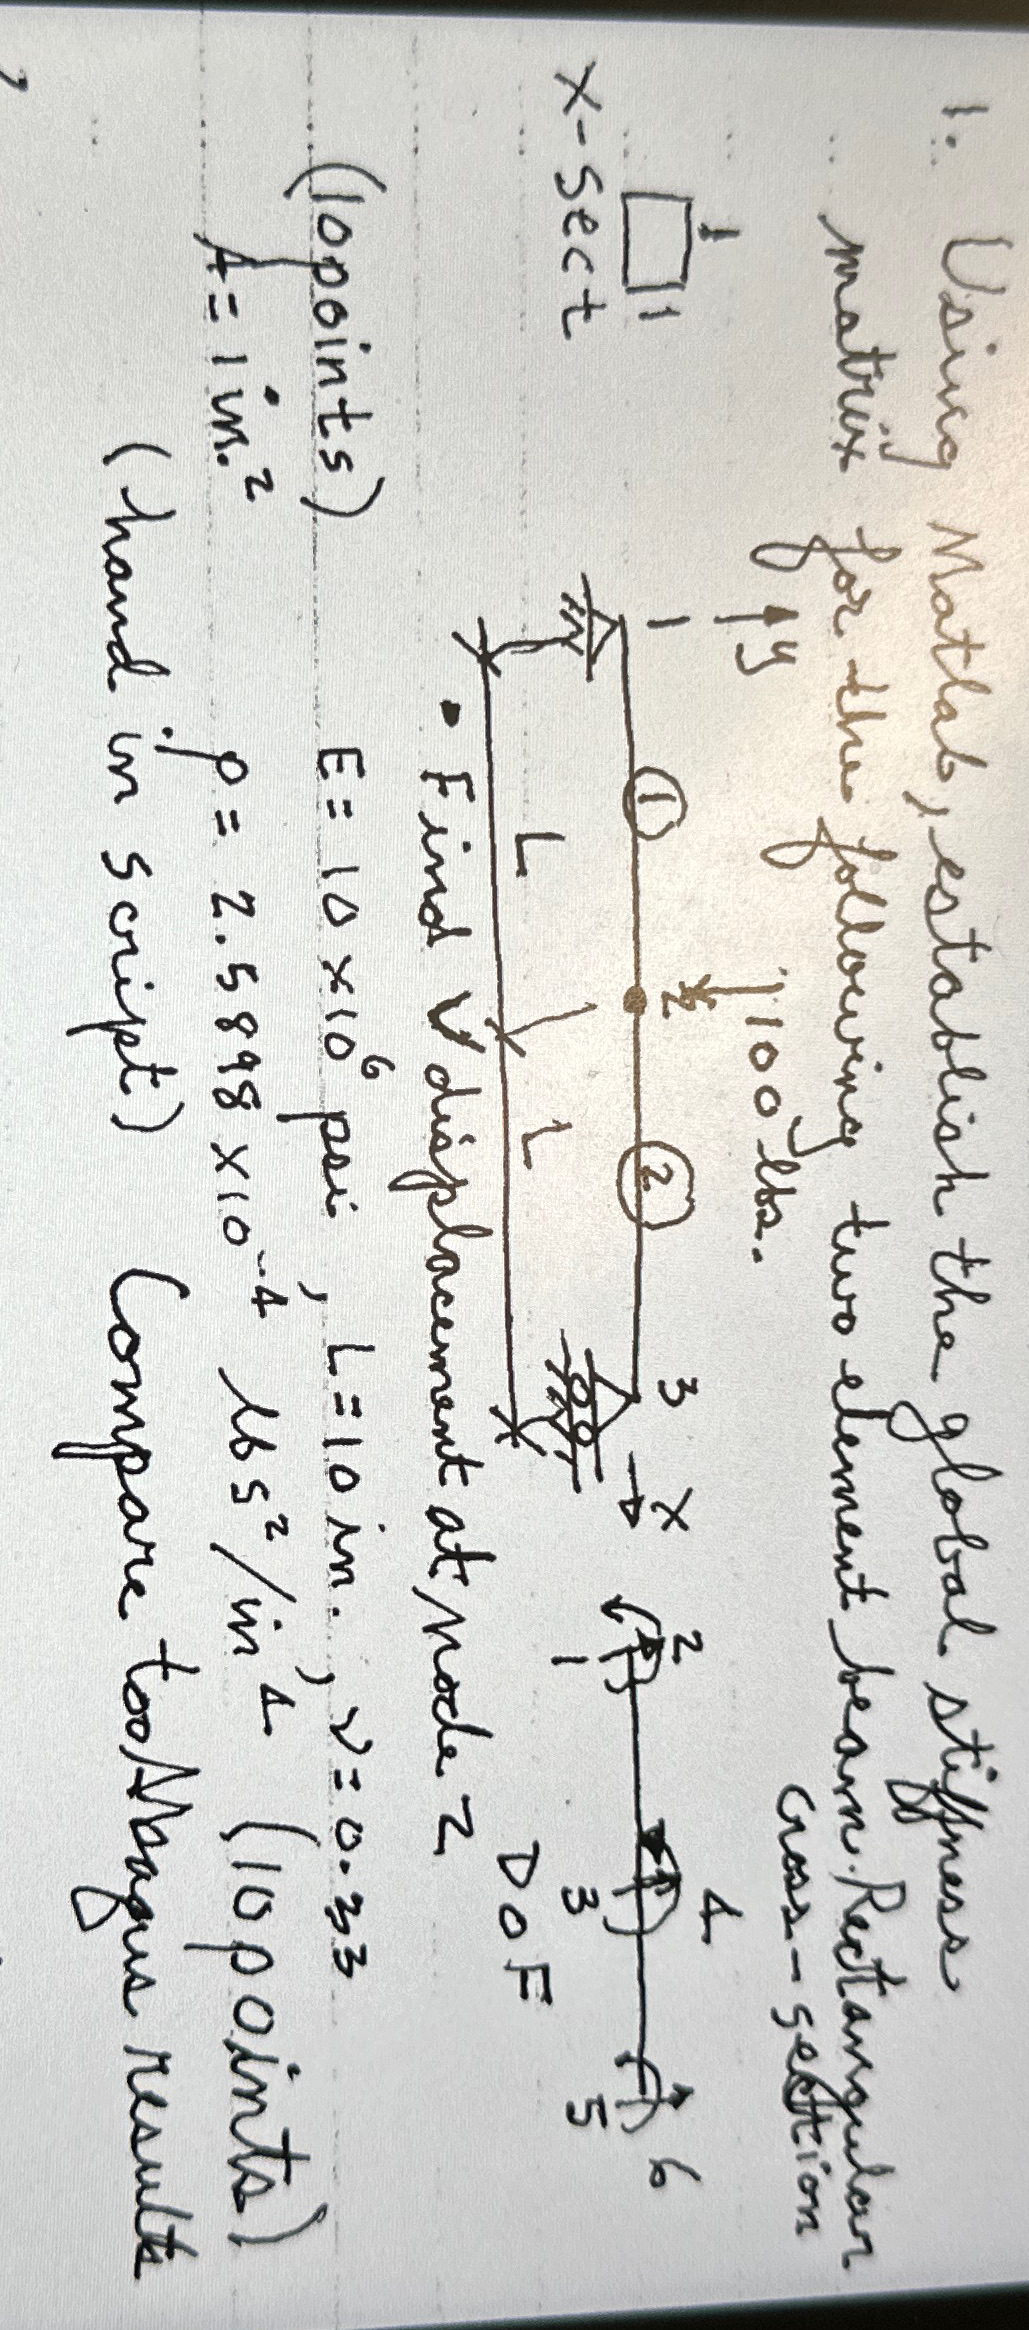 1. Using Matlab, establish the global stiffness
matrix for the following two element beam. Rectangular
cross-section
y
100 lbs.
1
1
X-Sect
1
1
2
2
3
X
L
L
2
1
4
3
6
5
DOF
• Find V displacement at node 2
(10 points)
E = 10 x 10^6 psi, L = 10 in., ν = 0.33
A = 1 in.^2
ρ = 2.5898 x 10^-4 lb s^2/in^4 (10 points)
(hand in script) Compare to Abaqus results